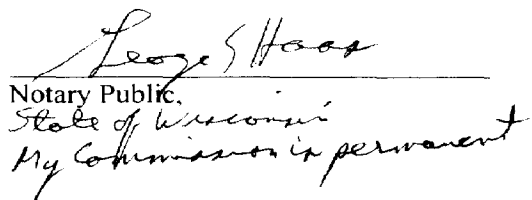 George S Haas
Notary Public,
State of Wisconsin
My Commission is permanent